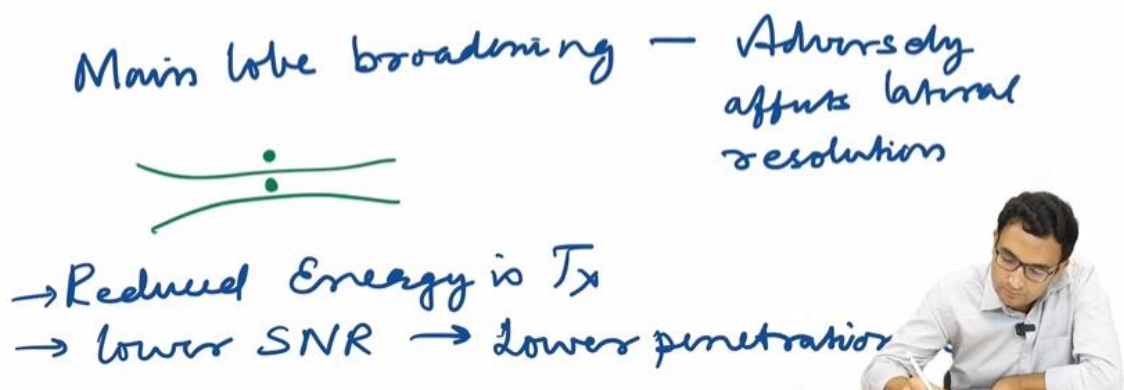 Main lobe broadening — Adversely
affects lateral
resolution
→ Reduced Energy is Tx
→ lower SNR → Lower penetration